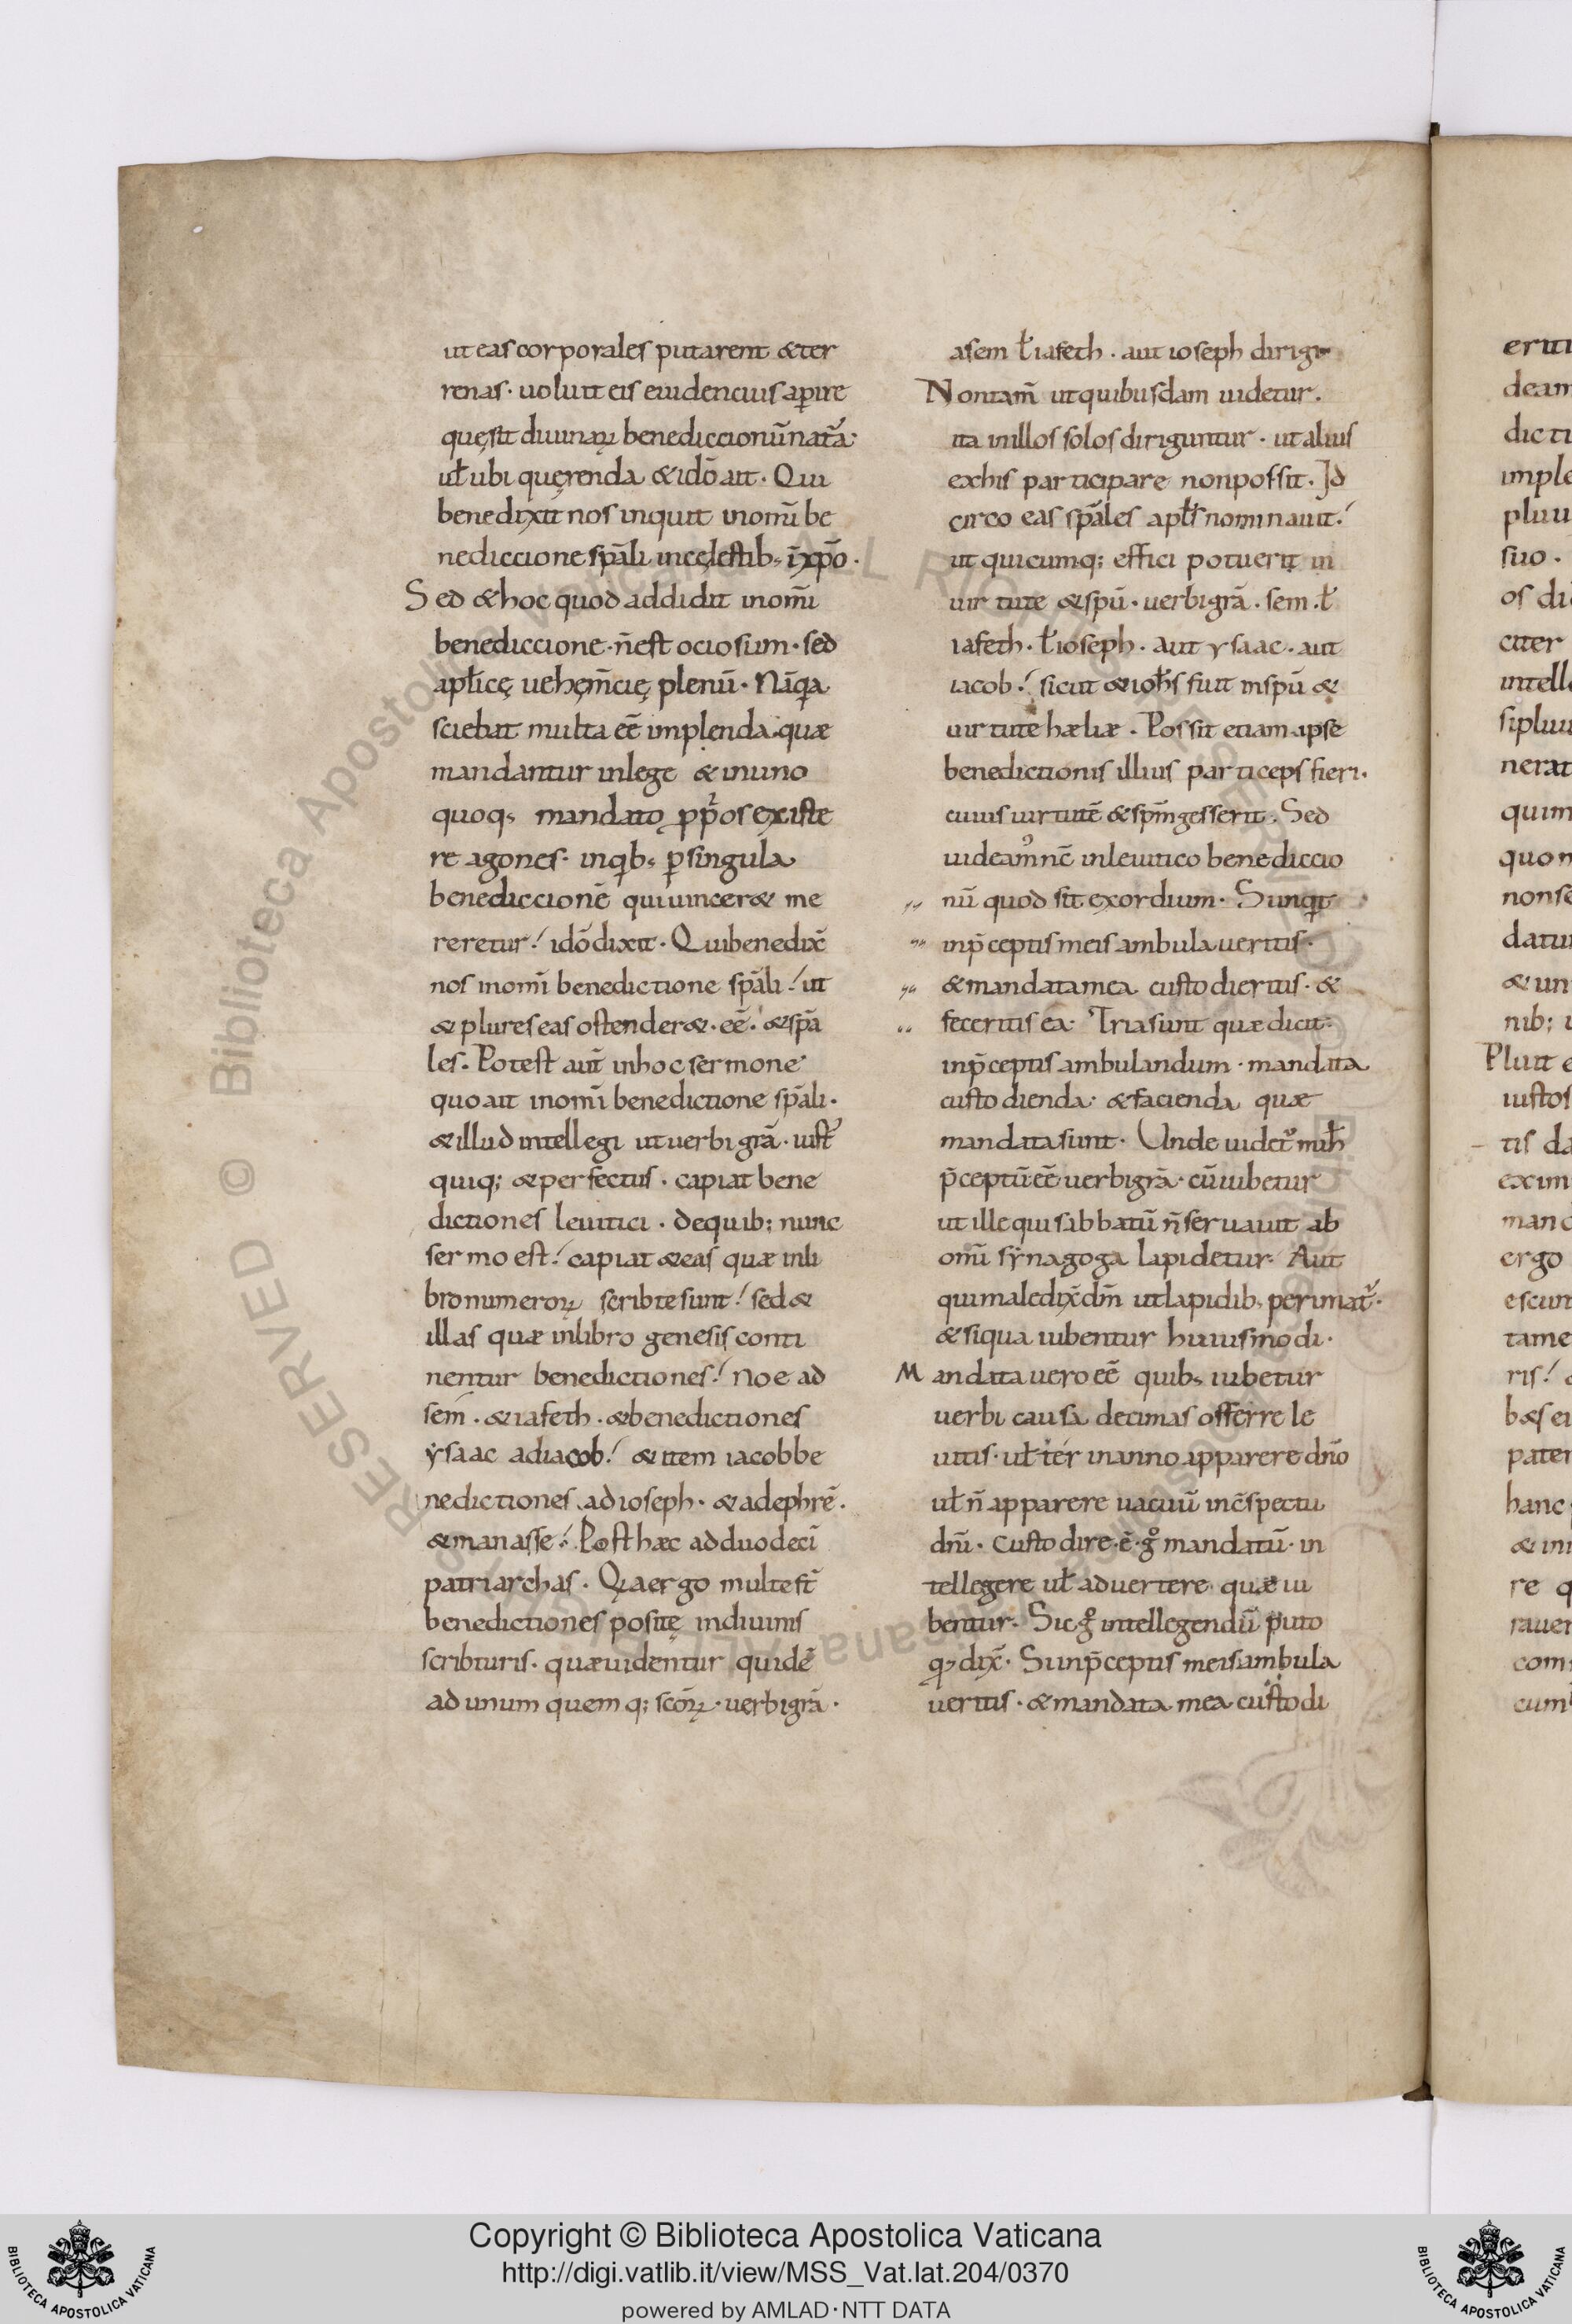 ut eas corporales putarent & ter
renas · uoluit eis euidencius aꝑire
quę sit diuinaꝝ benediccionū nat̃a·
uł ubi querenda & idō ait · Qui
benedixit nos inquit inom̄i be
nediccione sp̄ali incęlestib; īxp̄o ·
Sed & hoc quod addidit inom̄i
benediccione · n̄ est ociosum · sed
apłicę uehem̄cię plenū · Nāq̨a
sciebat multa eē implenda · quæ
mandantur inlege & inuno
quoq; mandato ꝓp̄os existe
re agones · inqib; ꝑ singula
benediccionē qui uincer& me
reretur! idō dixit · Qui benedix̄
nos inom̄i benedictione sp̄ali! ut
& plures eas ostender& · eē · & sp̄a
les · Potest aut̄ inhoc sermone
quo ait inom̄i benedictione sp̄ali ·
& illud intellegi ut uerbi grā · iust᾿
quiq; & perfectus · capiat bene
dictiones leuitici · de quib; nunc
sermo est! capiat & eas quæ inli
bro numeroꝝ scribte sunt! sed &
illas quæ inlibro genesis conti
nentur benedictiones! noe ad
sem · & iafeth · & benedictiones
ẏsaac ad iacob! & item iacob be
nedictiones ad ioseph · & ad ephrē ·
& manasse! Post hæc ad duodecī
patriarchas · Qia ergo multe st̄
benedictiones positę indiuinis
scribturis · quæ uidentur quidē
ad unum quemq; sc̄oꝝ · uerbi grā ·
asem ł iafeth · aut ioseph dirigi
Non tam̄ ut quibusdam uidetur ·
ita inillos solos diriguntur · ut alius
exhis participare non possit · Id
circo eas sp̄ales apłs nominauit!
ut quicumq; effici potuerit in
uirtute & spū · uerbi grā · sem · ł
iafeth · ł ioseph · aut ysaac · aut
iacob! sicut & ioħs fuit inspū &
uirtute hæliæ · Possit etiam ipse
benedictionis illius particeps fieri ·
cuius uirtutē & spm̄ gesserit · Sed
uideam᾿ nc̄ inleuitico benediccio
nū quod sit exordium · Si inqit
inp̄ceptis meis ambulaueritis ·
& mandata mea custodieritis · &
feceritis ea · Tria sunt quæ dicit ·
inp̄ceptis ambulandum · mandata
custodienda · & facienda quæ
mandata sunt · Unde uidet᾿ miħ
p̄ceptū eē uerbi grā · cū iubetur
ut ille qui sabbatū n̄ seruauit ab
om̄i synagoga lapidetur · Aut
qui maledix̄ dm̄ ut lapidib; perimat᾿ ·
& siqua iubentur huiusmodi ·
Mandata uero eē quib; iubetur
uerbi causa decimas offerre le
uitis · uł ter inanno apparere dn̄o
uł n̄ apparere uacuū inc̄spectu
dn̄i · Custodire · ē · g̊ mandatū · in
tellegere uł aduertere quæ iu
bentur · Sic g̊ intellegendū puto
qđ dix̄ · Si inp̄ceptis meis ambula
ueritis · & mandata mea custodi
Copyright © Biblioteca Apostolica Vaticana
http://digi.vatlib.it/view/MSS_Vat.lat.204/0370
powered by AMLAD·NTT DATA